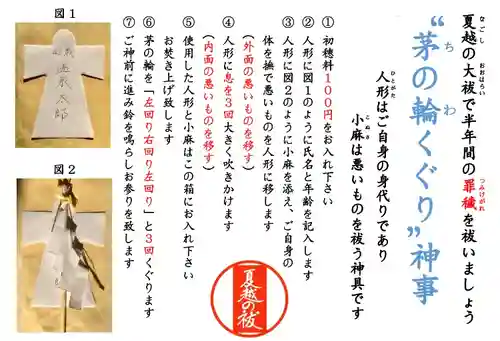 夏越の大祓で半年間の罪穢を祓いましょう
なごし
おおはらい
つみけがれ
“茅の輪くぐり”神事
ち
わ
人形はご自身の身代りであり
ひとがた
小麻は悪いものを祓う神具です
こぬさ
①初穂料100円をお入れ下さい
②人形に図1のように氏名と年齢を記入します
③人形に図2のように小麻を添え、ご自身の
体を撫で悪いものを人形に移します
(外面の悪いものを移す)
④人形に息を3回大きく吹きかけます
(内面の悪いものを移す)
⑤使用した人形と小麻はこの箱にお入れ下さい
お焚き上げ致します
⑥茅の輪を「左回り右回り左回り」と3回くぐります
⑦ご神前に進み鈴を鳴らしお参りを致します
夏越の祓
図1
図2